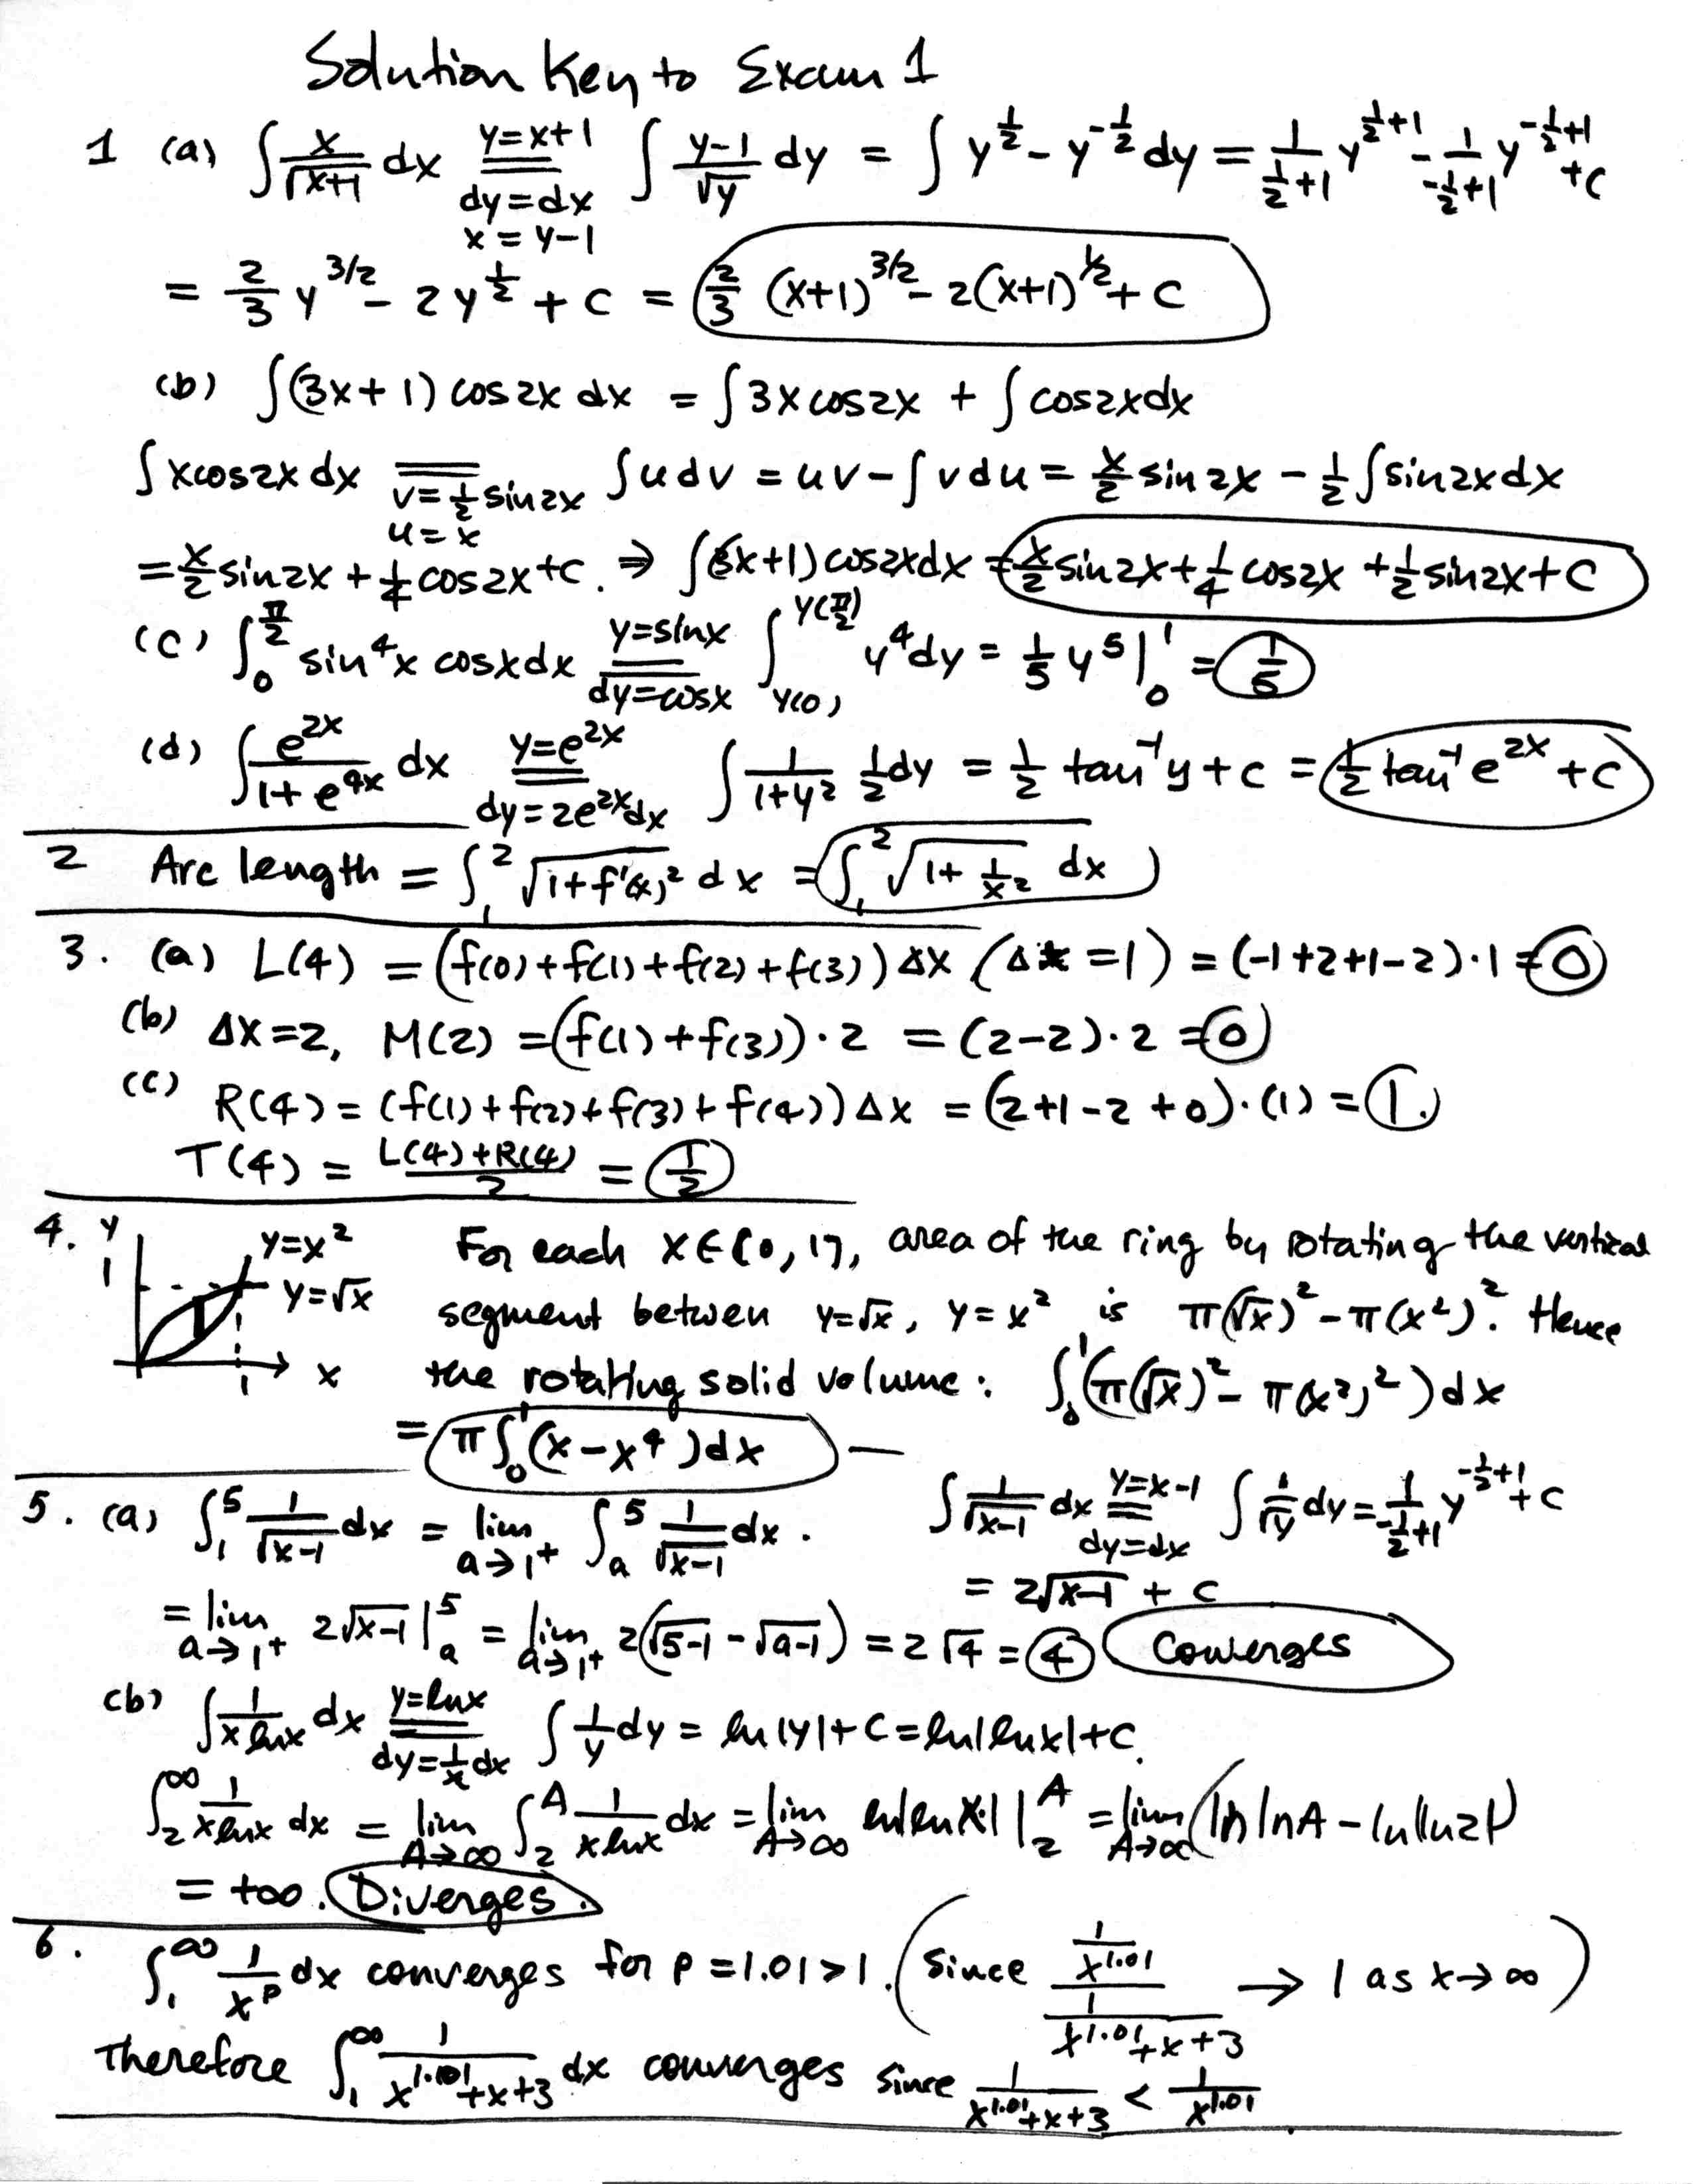 Solution Key to Exam 1
1 (a) ∫ x/√(x+1) dx  y=x+1, dy=dx, x=y-1 == ∫ (y-1)/√y dy = ∫ y^(1/2) - y^(-1/2) dy = 1/(1/2+1) y^(1/2+1) - 1/(-1/2+1) y^(-1/2+1) + C
= 2/3 y^(3/2) - 2y^(1/2) + C = 2/3 (x+1)^(3/2) - 2(x+1)^(1/2) + C
(b) ∫(3x+1) cos2x dx = ∫3x cos2x + ∫cos2x dx
∫x cos2x dx == v=1/2 sin2x, u=x ∫u dv = uv - ∫v du = x/2 sin2x - 1/2 ∫sin2x dx
= x/2 sin2x + 1/4 cos2x + C. ⇒ ∫(3x+1) cos2x dx = x/2 sin2x + 1/4 cos2x + 1/2 sin2x + C
(c) ∫_0^(π/2) sin^4 x cosx dx  y=sinx, dy=cosx == ∫_(y(0))^(y(π/2)) y^4 dy = 1/5 y^5 |_0^1 = 1/5
(d) ∫ e^(2x)/(1+e^(4x)) dx  y=e^(2x), dy=2e^(2x)dx == ∫ 1/(1+y^2) 1/2 dy = 1/2 tan^-1 y + C = 1/2 tan^-1 e^(2x) + C
2 Arc length = ∫_1^2 √(1+f'(x)^2) dx = ∫_1^2 √(1+1/x^2) dx
3. (a) L(4) = (f(0)+f(1)+f(2)+f(3)) Δx (Δx=1) = (-1+2+1-2)·1 = 0
(b) Δx=2, M(2) = (f(1)+f(3))·2 = (2-2)·2 = 0
(c) R(4) = (f(1)+f(2)+f(3)+f(4)) Δx = (2+1-2+0)·(1) = 1.
T(4) = (L(4)+R(4))/2 = 1/2
4. y 1 y=x^2 y=√x x 1
For each x∈[0,1], area of the ring by rotating the vertical
segment betwen y=√x, y=x^2 is π(√x)^2 - π(x^2)^2. Hence
the rotating solid volume: ∫_0^1 (π(√x)^2 - π(x^2)^2) dx
= π∫_0^1 (x-x^4) dx
5. (a) ∫_1^5 1/√(x-1) dx = lim_(a→1+) ∫_a^5 1/√(x-1) dx. ∫ 1/√(x-1) dx  y=x-1, dy=dx == ∫ 1/√y dy = 1/(-1/2+1) y^(-1/2+1) + C
= 2√(x-1) + C
= lim_(a→1+) 2√(x-1) |_a^5 = lim_(a→1+) 2(√(5-1) - √(a-1)) = 2√4 = 4 Converges
(b) ∫ 1/(x lnx) dx  y=lnx, dy=1/x dx == ∫ 1/y dy = ln|y| + C = ln|lnx| + C.
∫_2^∞ 1/(x lnx) dx = lim_(A→∞) ∫_2^A 1/(x lnx) dx = lim_(A→∞) ln|lnx| |_2^A = lim_(A→∞) (ln lnA - ln|ln2|)
= +∞. Diverges.
6. ∫_1^∞ 1/x^p dx converges for p=1.01>1. (Since (1/x^1.01)/(1/(x^1.01+x+3)) → 1 as x→∞)
Therefore ∫_1^∞ 1/(x^1.01+x+3) dx converges since 1/(x^1.01+x+3) < 1/x^1.01